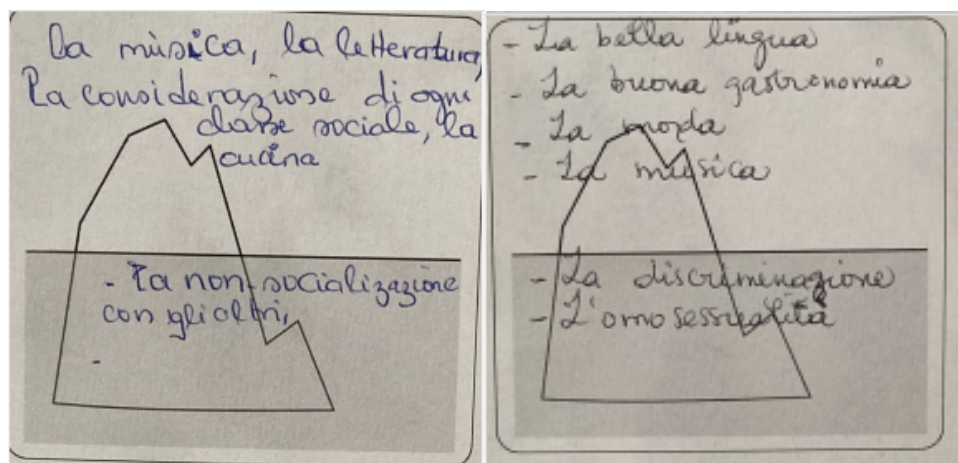 La mùsica, la letteratura,
la considerazione di ogni
classe sociale, la
cucina
- La non-socializzazione
con gli altri,
-
- La bella lingua
- La buona gastronomia
- La moda
- La musica
- La discriminazione
- L'omosessualità